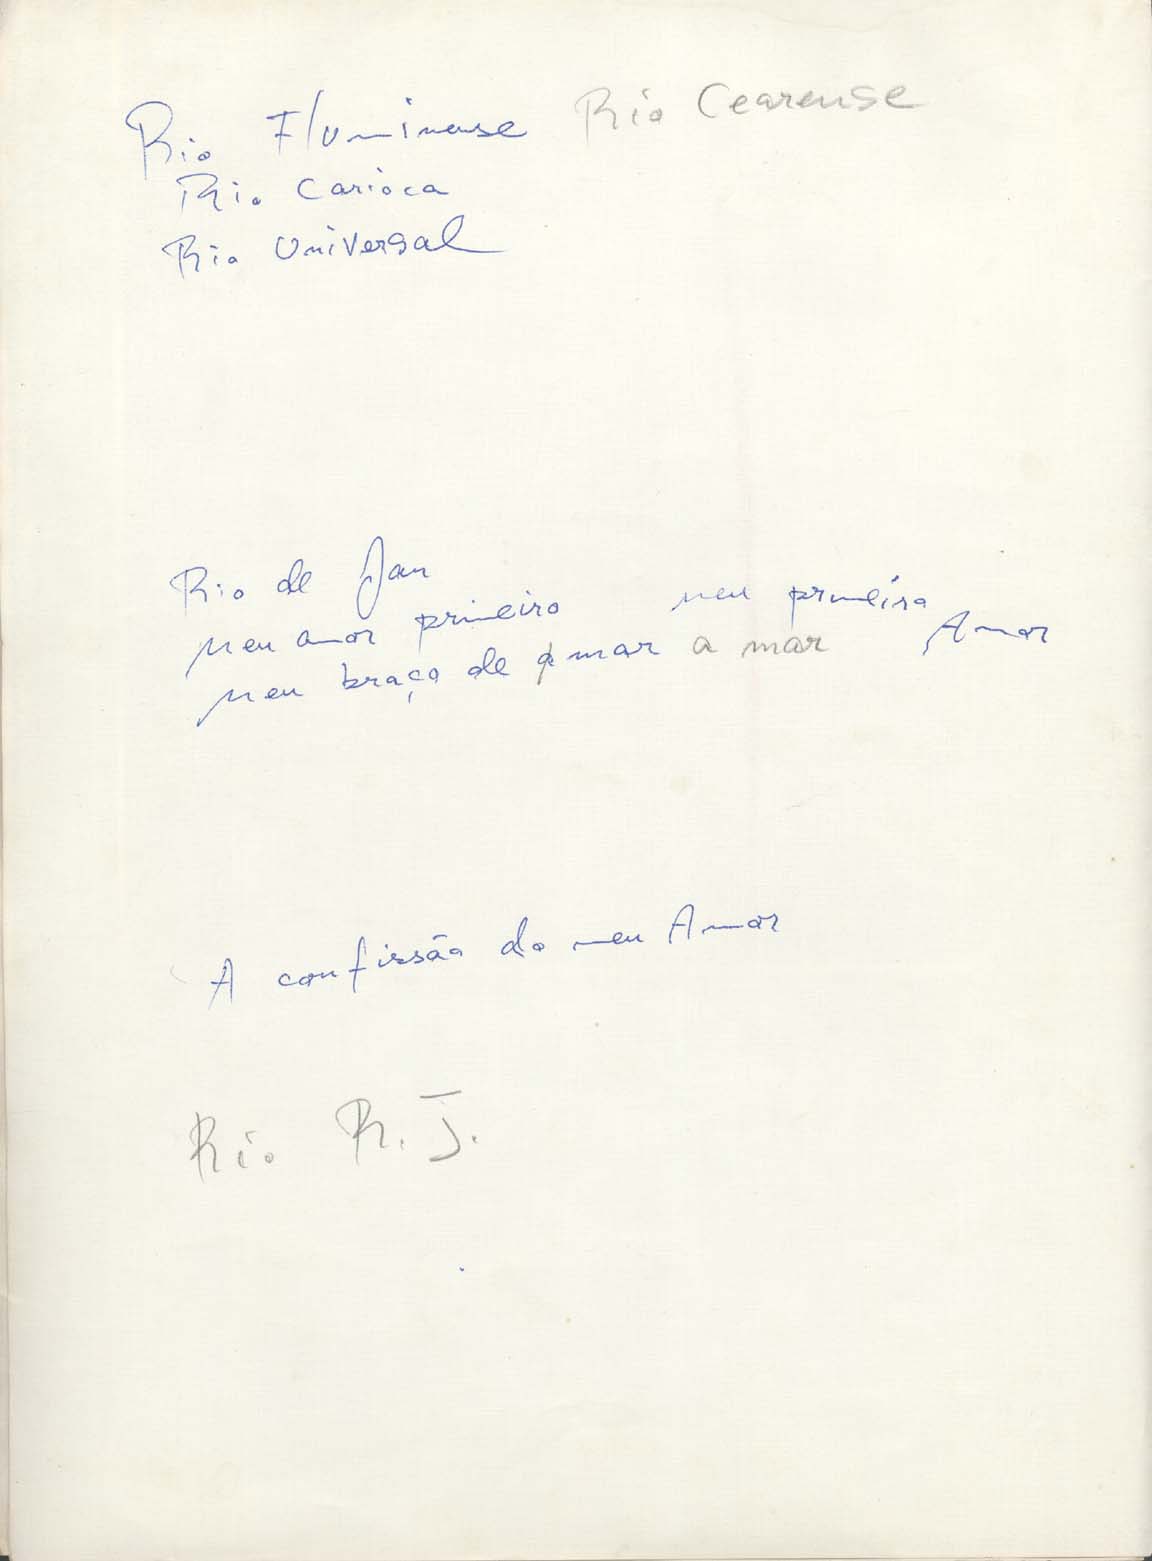 Rio Fluminense Rio Cearense
Rio Carioca
Rio Universal
Rio de Jan
meu amor primeiro meu primeiro
meu braço de mar a mar Amor
A confissão do meu Amor
Rio R. J.